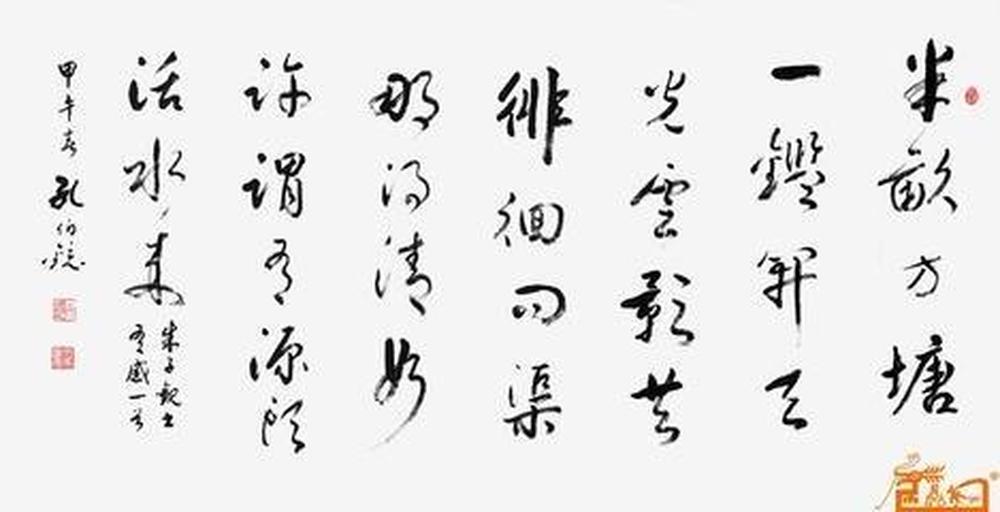 半畝方塘
一鑑開天
光雲影共
徘徊問渠
那得清如
許謂有源頭
活水来
朱子觀書
有感一首
甲午春 孔伯